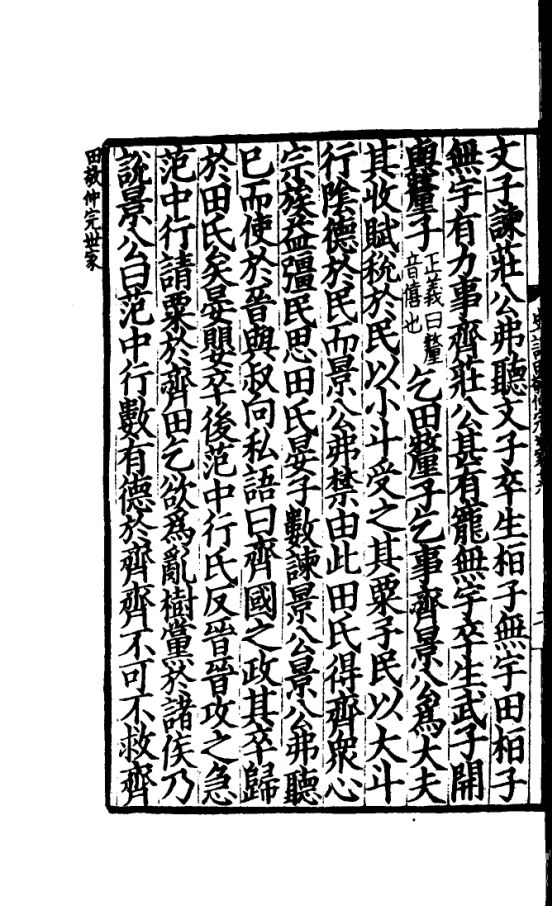 文子諫莊公弗聽文子卒生桓子無宇田桓子
無宇有力事齊莊公甚有寵無宇卒生武子開
與釐子正義曰釐音僖也乞田釐子乞事齊景公爲大夫
其收賦稅於民以小斗受之其粟予民以大斗
行陰德於民而景公弗禁由此田氏得齊衆心
宗族益彊民思田氏晏子數諫景公景公弗聽
已而使於晉與叔向私語曰齊國之政其卒歸
於田氏矣晏嬰卒後范中行氏反晉晉攻之急
范中行請粟於齊田乞欲爲亂樹黨於諸侯乃
說景公曰范中行數有德於齊齊不可不救齊
田敬仲完世家